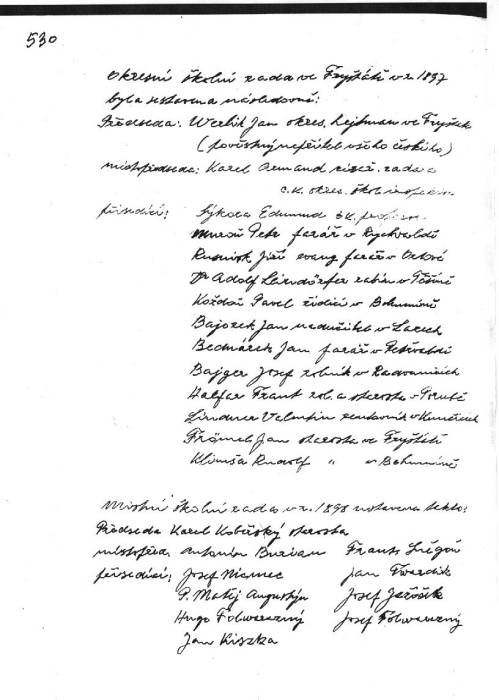 530
Okresní školní rada ve Fryštátě v r. 1897
byla sestavena následovně:
Předseda: Werlik Jan okres. hejtman ve Fryštátě
(pověstný nepřítel všeho českého)
místopředseda: Karel Armand císař. rada a
c.k. okres. škol. inspektor
přísedící: Sýkora Edmund
Petr farář v Rychvaldě
Jiří evang. farář v Orlové
Dr Adolf rabín v Těšíně
Koždoň Pavel řídící v Bohumíně
Bajorek Jan nadučitel v Lazech
Bednárek Jan farář v Petřvaldě
Bajger Josef rolník v Radvanicích
Halfar Frant. rol. a starosta v Porubě
Lindner Valentin v Kunčicích
Jan starosta ve Fryštátě
Klimša Rudolf " v Bohumíně
Místní školní rada v r. 1898 ustavena takto:
Předseda Karel Koběrský starosta
místopřed. Antonín Burian Frant.
přísedící: Josef Niemec Jan Twardík
P. Matěj Augustýn Josef Ježíšek
Hugo Folwarczný Josef Folwarczný
Jan Kiszka